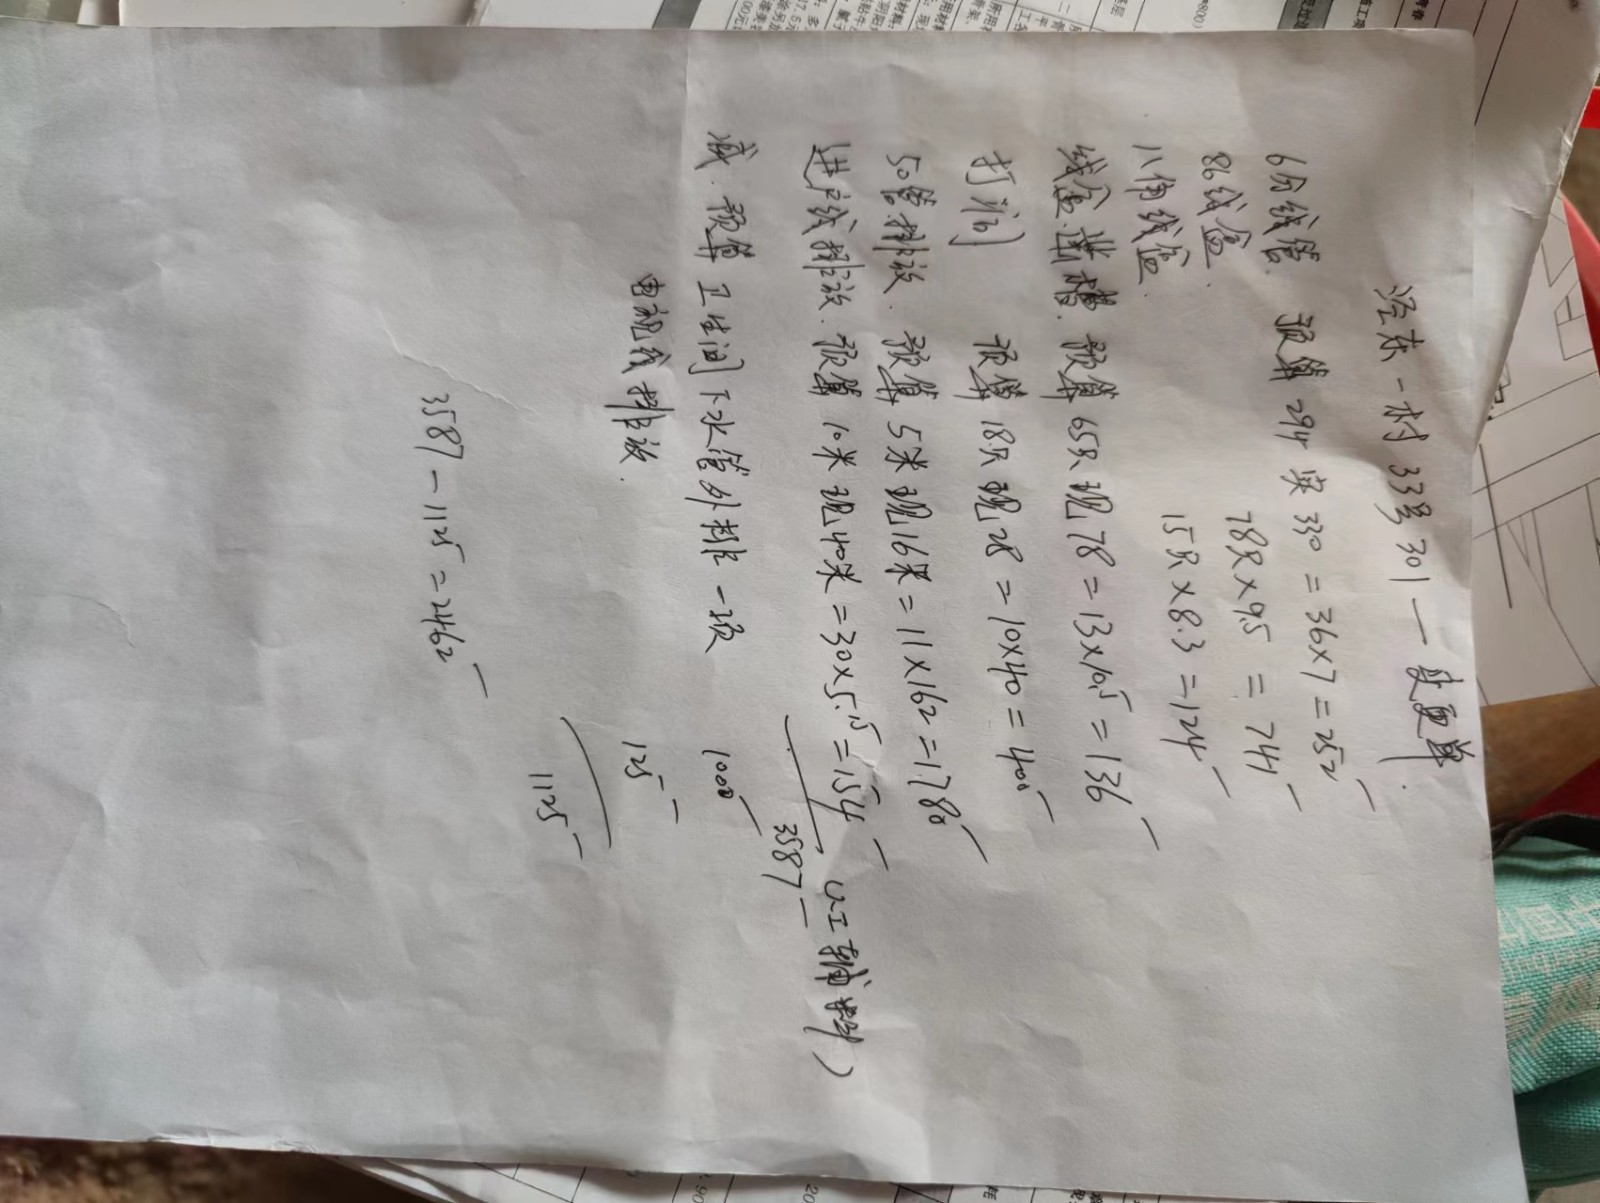 泾东一村33号301一变更单.
6分线管. 预算294 实330=36×7=252
86线盒. 78只×9.5=741
八角线盒. 15只×8.3=124
线盒凿槽. 预算65只现78=13×10.5=136
打洞 预算18只现28=10×40=400
50管排放. 预算5米现16米=11×162=1780
进户线排放. 预算10米现40米=30×5.15=154
(人工辅料)
3587
减. 预算卫生间下水管外排一项 1000
电视线排放. 125
1125
3587-1125=2462